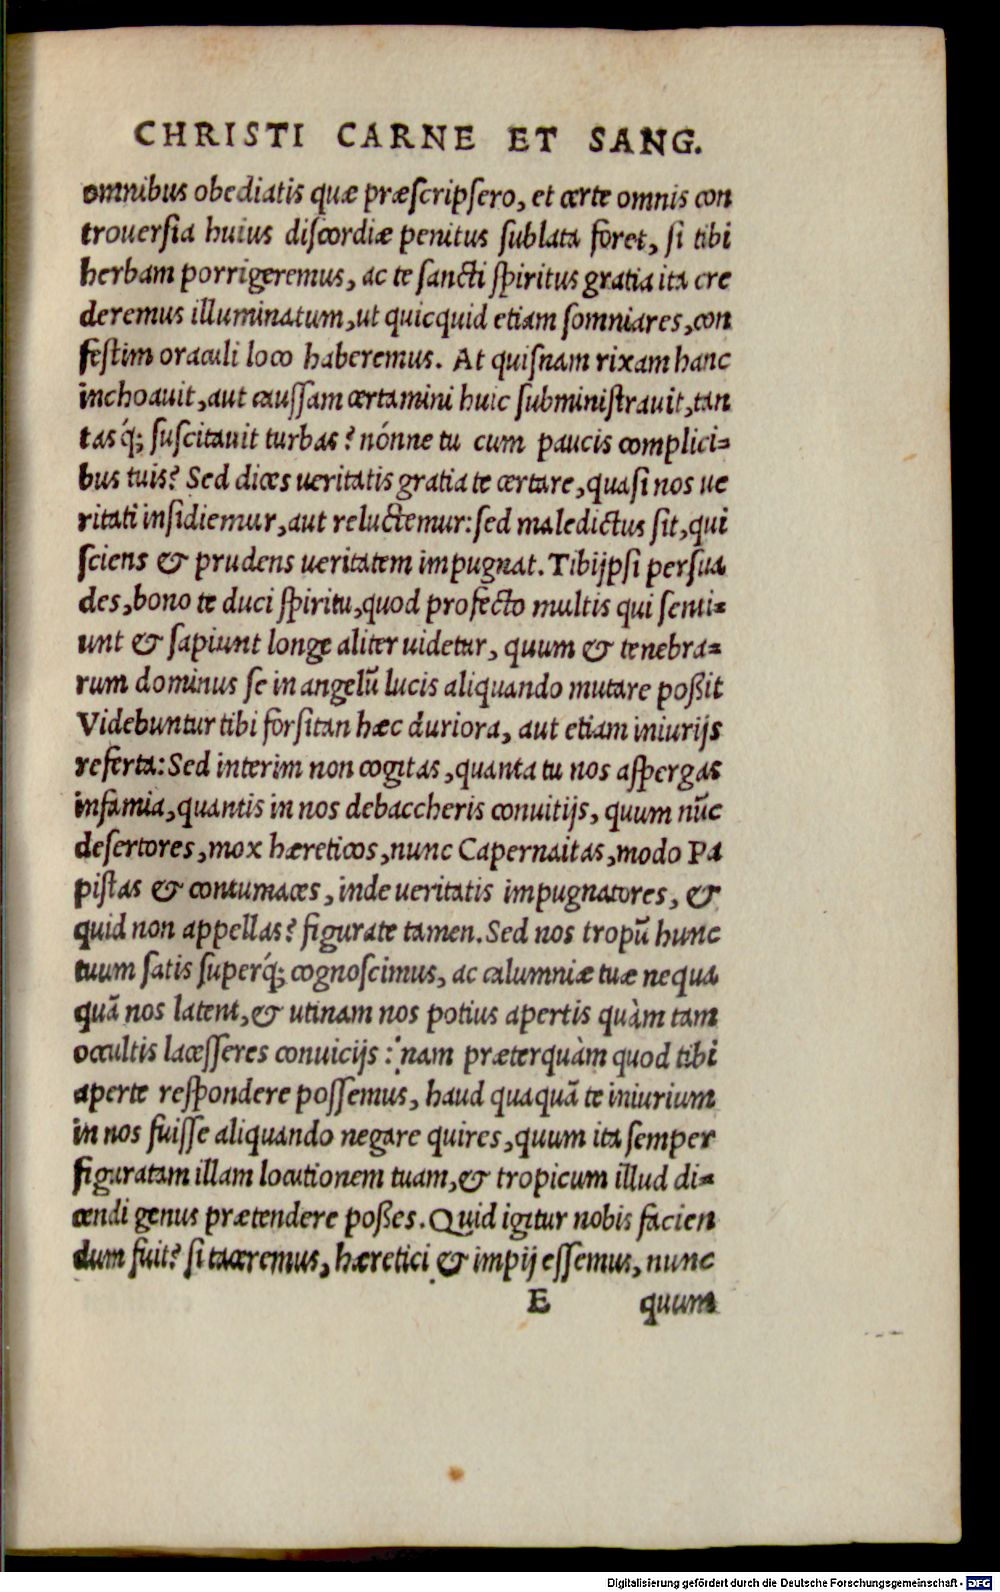 CHRISTI CARNE ET SANG.
omnibus obediatis quæ præſcripſero, et certe omnis con
trouerſia huius diſcordiæ penitus ſublata foret, ſi tibi
herbam porrigeremus, ac te ſancti ſpiritus gratia ita cre
deremus illuminatum, ut quicquid etiam ſomniares, con
feſtim oraculi loco haberemus. At quiſnam rixam hanc
inchoauit, aut cauſſam certamini huic ſubminiſtrauit, tan
tas q́; ſuſcitauit turbas? nónne tu cum paucis complici⸗
bus tuis? Sed dices ueritatis gratia te certare, quaſi nos ue
ritati inſidiemur, aut reluctemur: ſed maledictus ſit, qui
ſciens & prudens ueritatem impugnat. Tibijpſi perſua
des, bono te duci ſpiritu, quod profecto multis qui ſenti⸗
unt & ſapiunt longe aliter uidetur, quum & tenebra⸗
rum dominus ſe in angelũ lucis aliquando mutare poßit
Videbuntur tibi forſitan hæc duriora, aut etiam iniurijs
referta: Sed interim non cogitas, quanta tu nos aſpergas
infamia, quantis in nos debaccheris conuitijs, quum nũc
deſertores, mox hæreticos, nunc Capernaitas, modo Pa
piſtas & contumaces, inde ueritatis impugnatores, &
quid non appellas? figurate tamen. Sed nos tropũ hunc
tuum ſatis ſuperq́; cognoſcimus, ac calumniæ tuæ nequa
quã nos latent, & utinam nos potius apertis quàm tam
occultis laceſſeres conuicijs: nam præterquàm quod tibi
aperte reſpondere poſſemus, haud quaquã te iniurium
in nos fuiſſe aliquando negare quires, quum ita ſemper
figuratam illam locutionem tuam, & tropicum illud di⸗
cendi genus prætendere poßes. Quid igitur nobis facien
dum fuit? ſi taceremus, hæretici & impij eſſemus, nunc
E quum
Digitalisierung gefördert durch die Deutsche Forschungsgemeinschaft - DFG